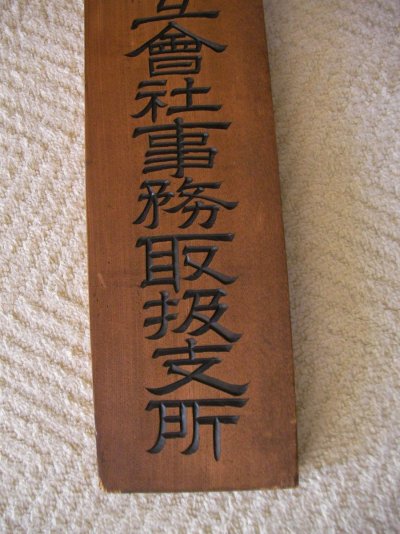 互會社事務取扱支所